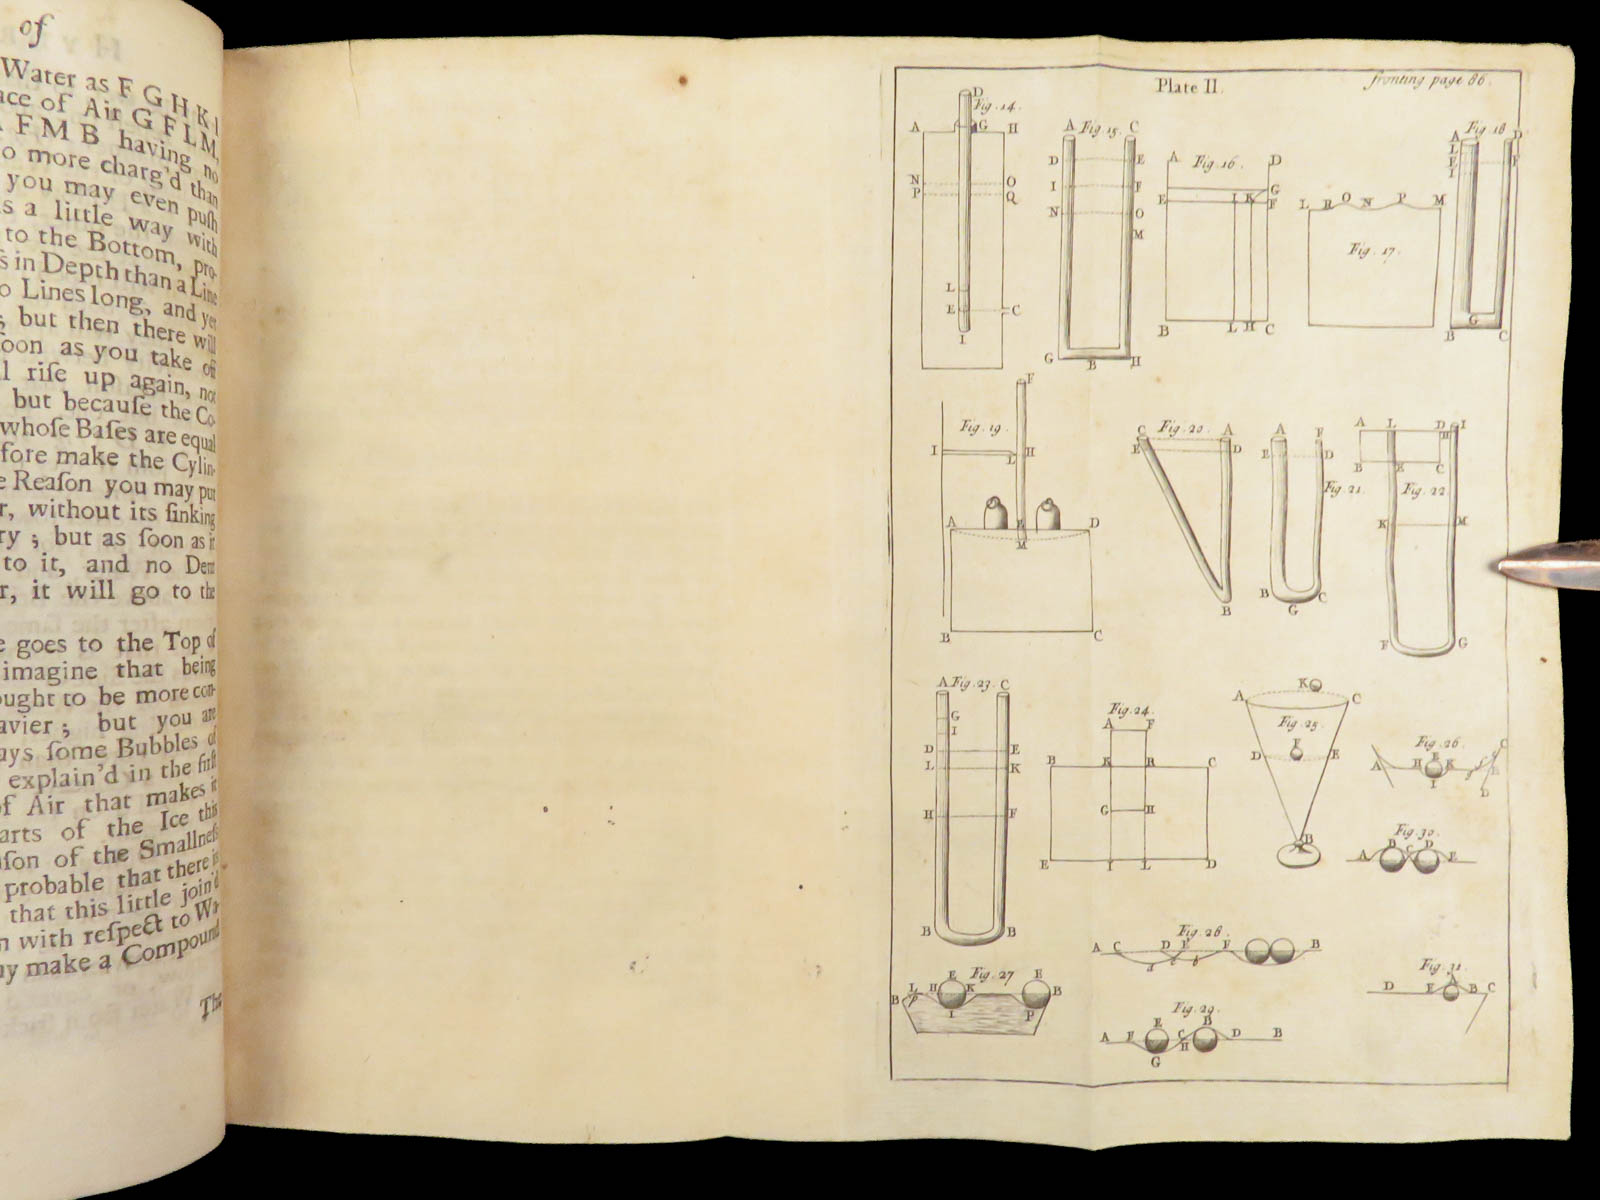 of
Water as F G H K I
ace of Air G F L M,
F M B having no
o more charg'd than
you may even puſh
s a little way with
to the Bottom, pro-
s in Depth than a Line
o Lines long, and yet
; but then there will
oon as you take off
l riſe up again, not
but becauſe the Co-
whoſe Baſes are equal
fore make the Cylin-
e Reaſon you may put
r, without its ſinking
ry; but as ſoon as it
to it, and no Dent
r, it will go to the
e goes to the Top of
imagine that being
ought to be more con-
avier; but you are
ays ſome Bubbles of
explain'd in the firſt
of Air that makes it
arts of the Ice this
aſon of the Smallneſs
probable that there is
that this little join'd
n with reſpect to Wa-
ay make a Compound
The
Plate II.
fronting page 86.
D
Fig. 14.
A G H
N O
P Q
L
E C
I
A Fig. 15. C
D E
I F
N O
M
G B H
A Fig. 16. D
G
E I K F
B L H C
L R O N P M
Fig. 17.
A Fig. 18 D
L
E F
I
G
B C
F
Fig. 19.
I L H
A E D
M
B C
C Fig. 20. A
E D
B
A F
E D
Fig. 21.
B C
G
A L D I
H
B E C
Fig. 22
K M
F G
A Fig. 23. C
G
I
D E
L K
H F
B B
Fig. 24.
A F
B K R C
G H
E I L D
K
A C
Fig. 25.
F
D E
B
Fig. 26.
C
A H E K
I
D
Fig. 30.
A B C D E
Fig. 28.
A C D E F B
Fig. 27
L H E K E B
B P
I P
Fig. 31.
A
D F B C
Fig. 29.
A F E C B D B
H
G